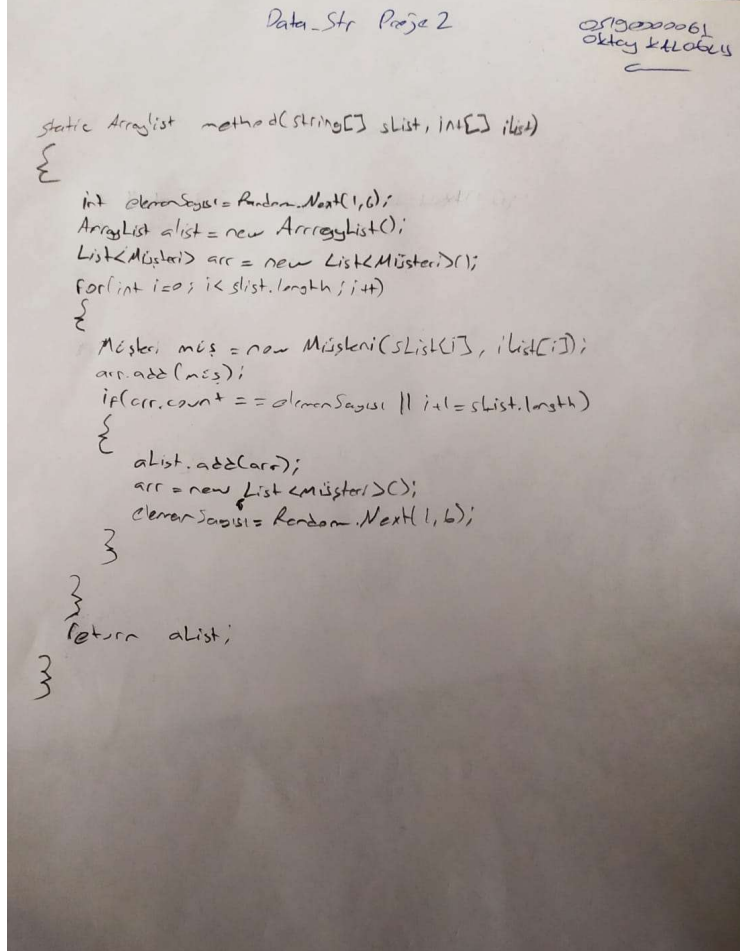 Data_Str Proje 2
05190000061
Oktay
static Arraylist method(string[] sList, int[] ilist)
{
int elemanSayısı = Random.Next(1,6);
ArrayList alist = new ArrregyList();
List<Müşteri> arr = new List<Müşteri>();
for(int i=0; i< slist.length; i++)
{
Müşteri müş = new Müşteri(sList[i], ilist[i]);
arr.add(müş);
if(arr.count == elemanSayısı || i+1=sList.length)
{
aList.add(arr);
arr = new List<müşteri>();
elemanSayısı = Random.Next(1,6);
}
}
return aList;
}